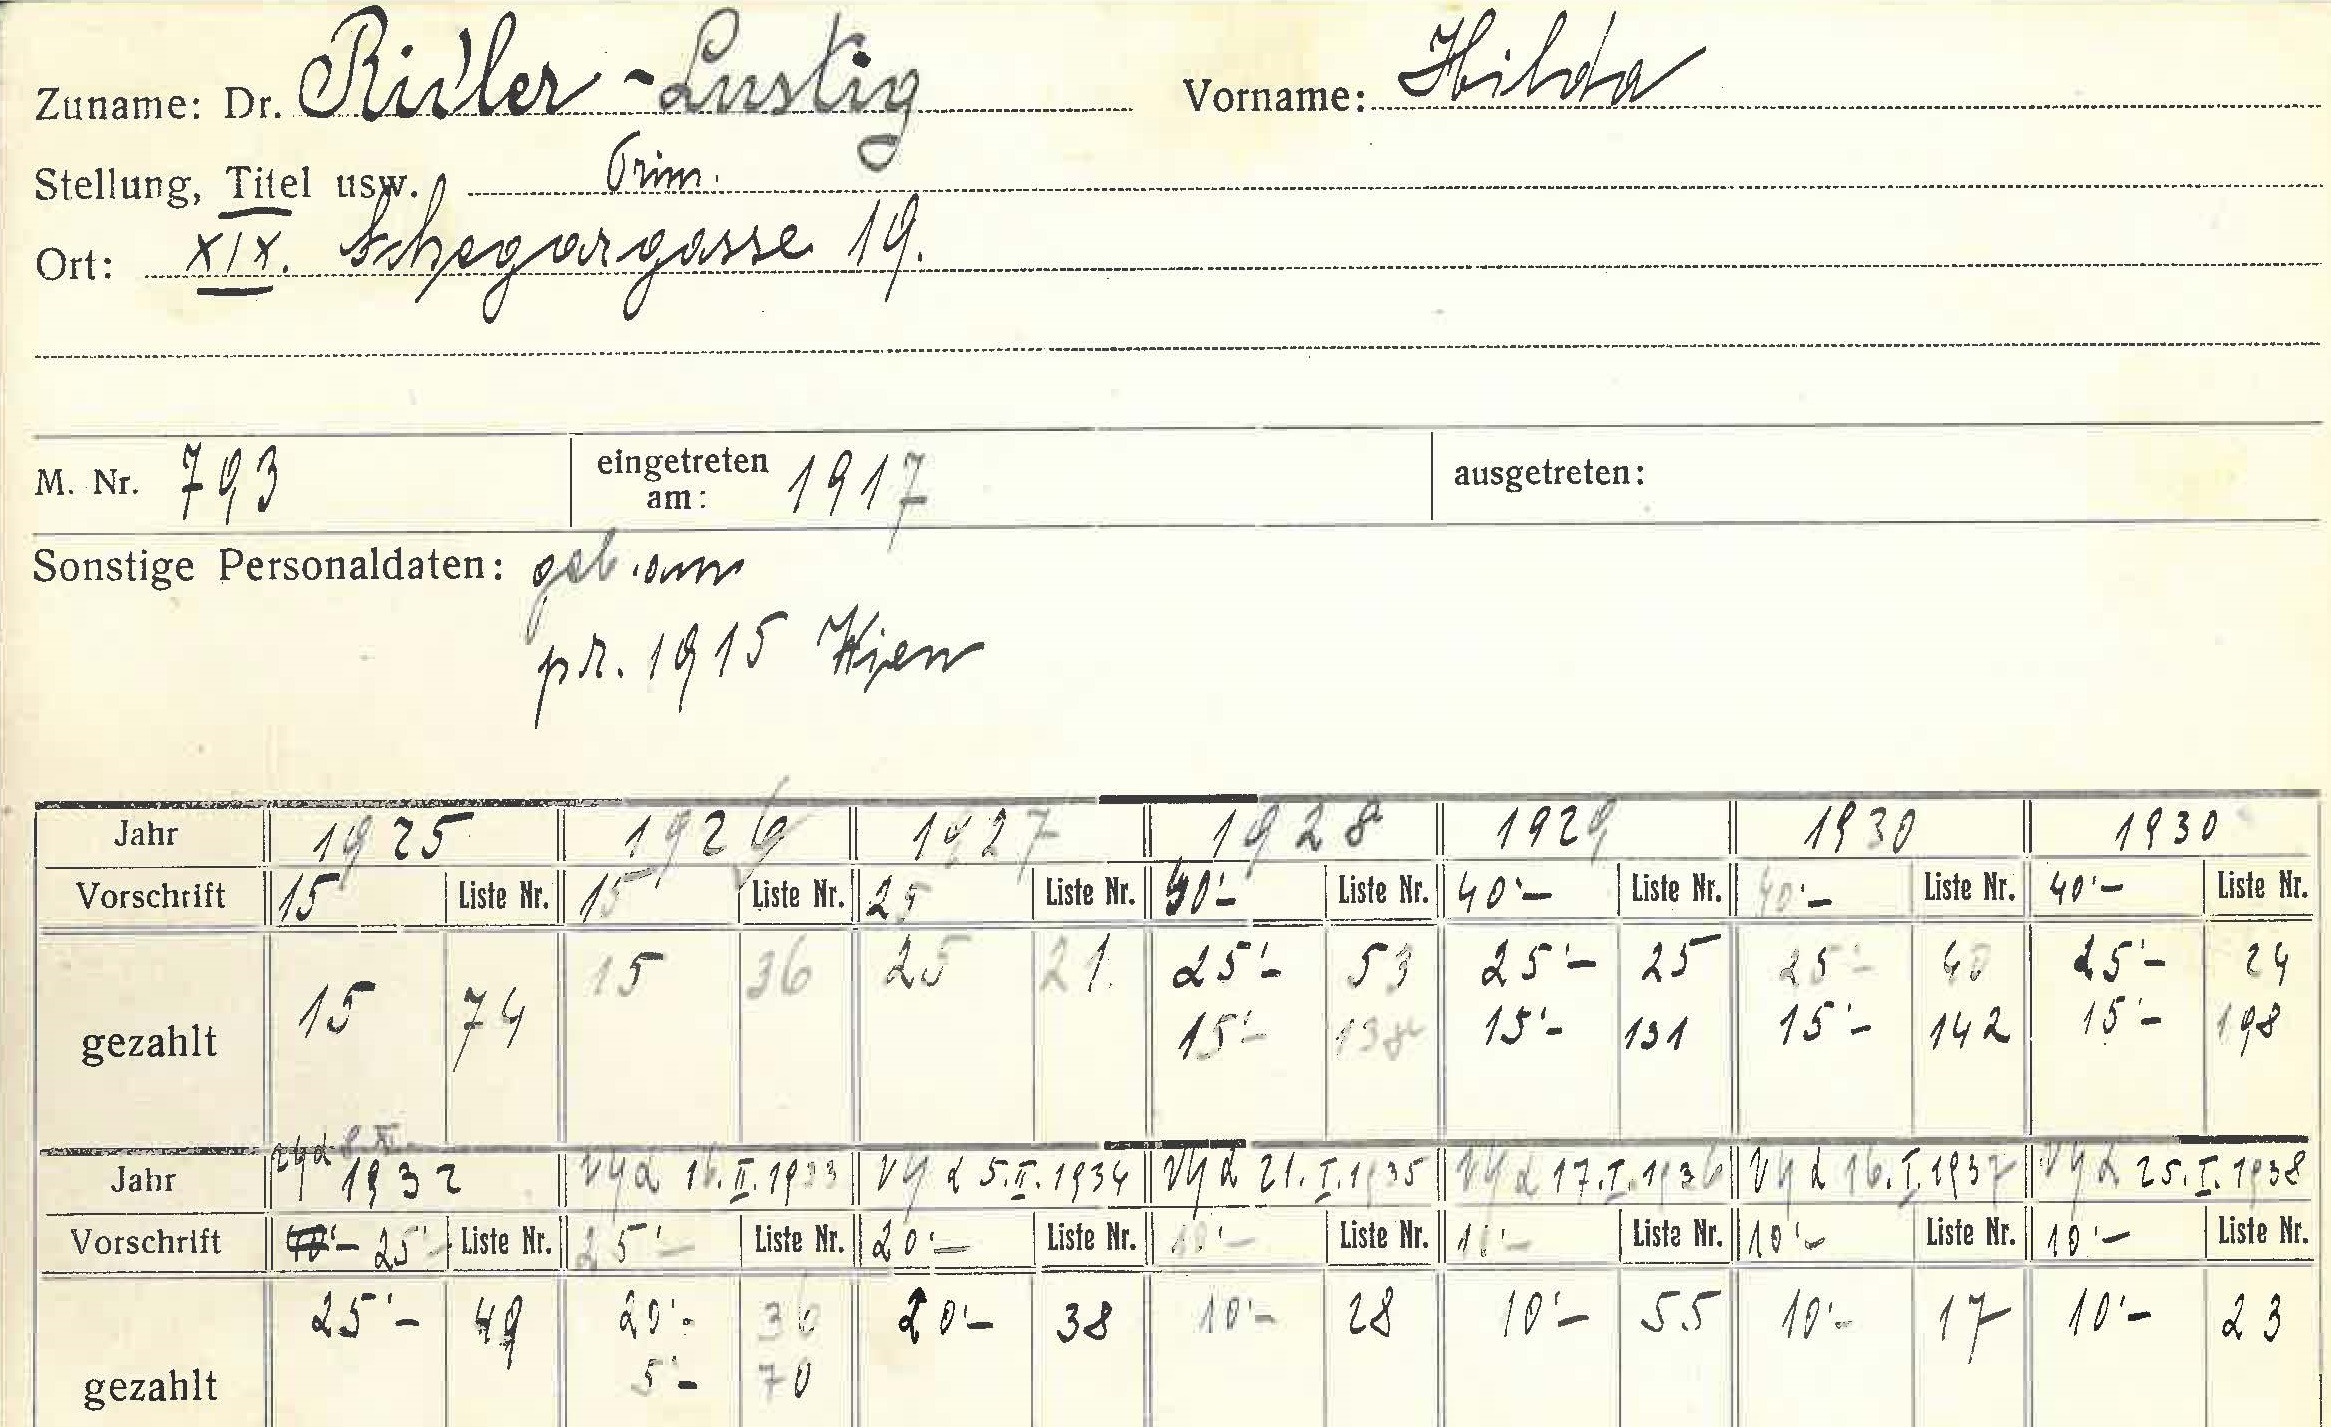 Zuname: Dr. Ridler - Lustig Vorname: Hilda
Stellung, Titel usw. Prim.
Ort: XIX. 19.
M. Nr. 793 eingetreten am: 1917 ausgetreten:
Sonstige Personaldaten: geb. am
pr. 1915 Wien
Jahr 1925 1926 1927 1928 1929 1930 1930
Vorschrift 15 Liste Nr. 15 Liste Nr. 25 Liste Nr. 40'- Liste Nr. 40'- Liste Nr. 40'- Liste Nr. 40'- Liste Nr.
gezahlt 15 74 15 36 25 21. 25'- 53 25'- 25 25'- 40 25'- 24
15'- 138 15'- 131 15'- 142 15'- 198
Jahr 1932 16.II.1933 5.II.1934 21.I.1935 17.I.1936 16.I.1937 25.I.1938
Vorschrift 40'- 25'- Liste Nr. 25'- Liste Nr. 20'- Liste Nr. 10'- Liste Nr. 10'- Liste Nr. 10'- Liste Nr. 10'- Liste Nr.
gezahlt 25'- 49 20'- 36 20'- 38 10'- 28 10'- 55 10'- 17 10'- 23
5'- 70